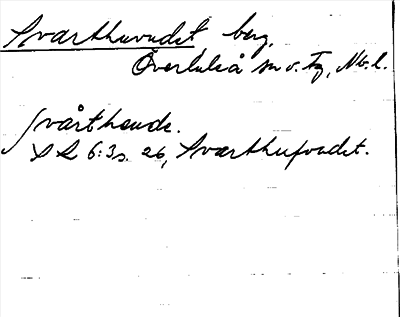 Svarthuvudet berg,
Överluleå sn v. Tg, Nb. l.
Svårthende.
SR 6:3 s. 26, Svarthufvudet.